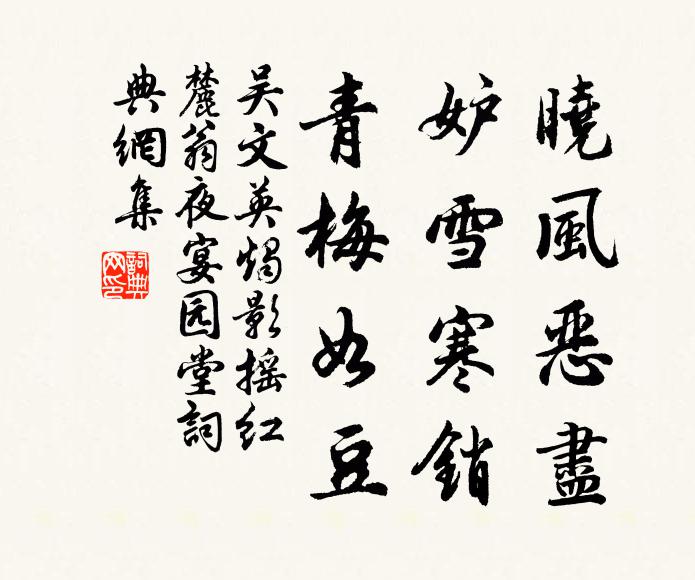 曉風惡盡
妒雪寒銷
青梅如豆
吴文英燭影摇红
麓翁夜宴园堂詞
典網集
詞典网印